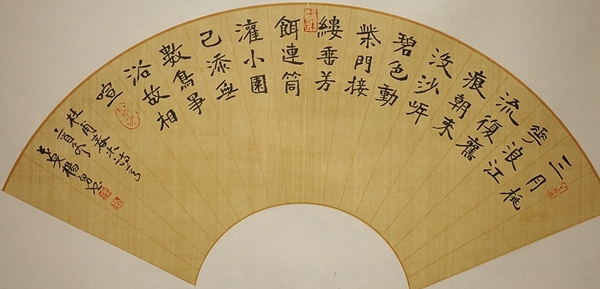 三月桃
花浪江
流復舊
痕朝來
沒沙岸
碧色動
柴門接
縷垂芳
餌連筒
灌小園
已添無
數鳥爭
浴故相
喧
杜甫春水